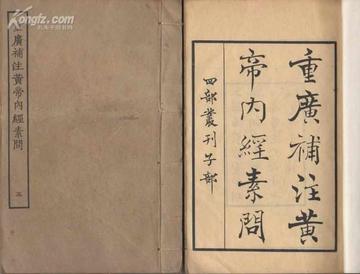 重廣補注黃
帝內經素問
四部叢刊子部
廣補注黃帝內經素問
三